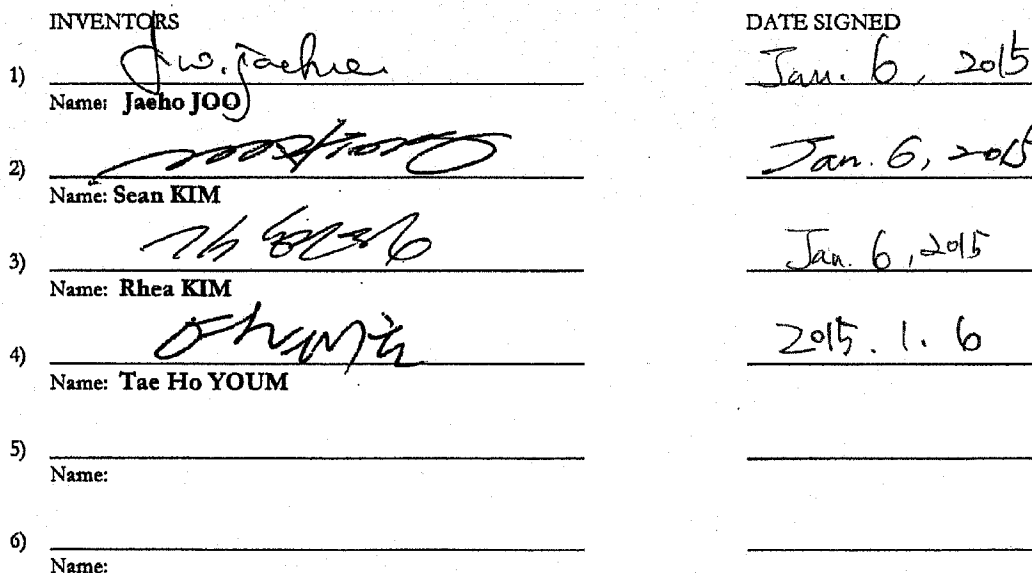 INVENTORS DATE SIGNED
1) Jan. 6, 2015
Name: Jaeho JOO
2) Jan. 6, 2015
Name: Sean KIM
3) Jan. 6, 2015
Name: Rhea KIM
4) 2015. 1. 6
Name: Tae Ho YOUM
5)
Name:
6)
Name: